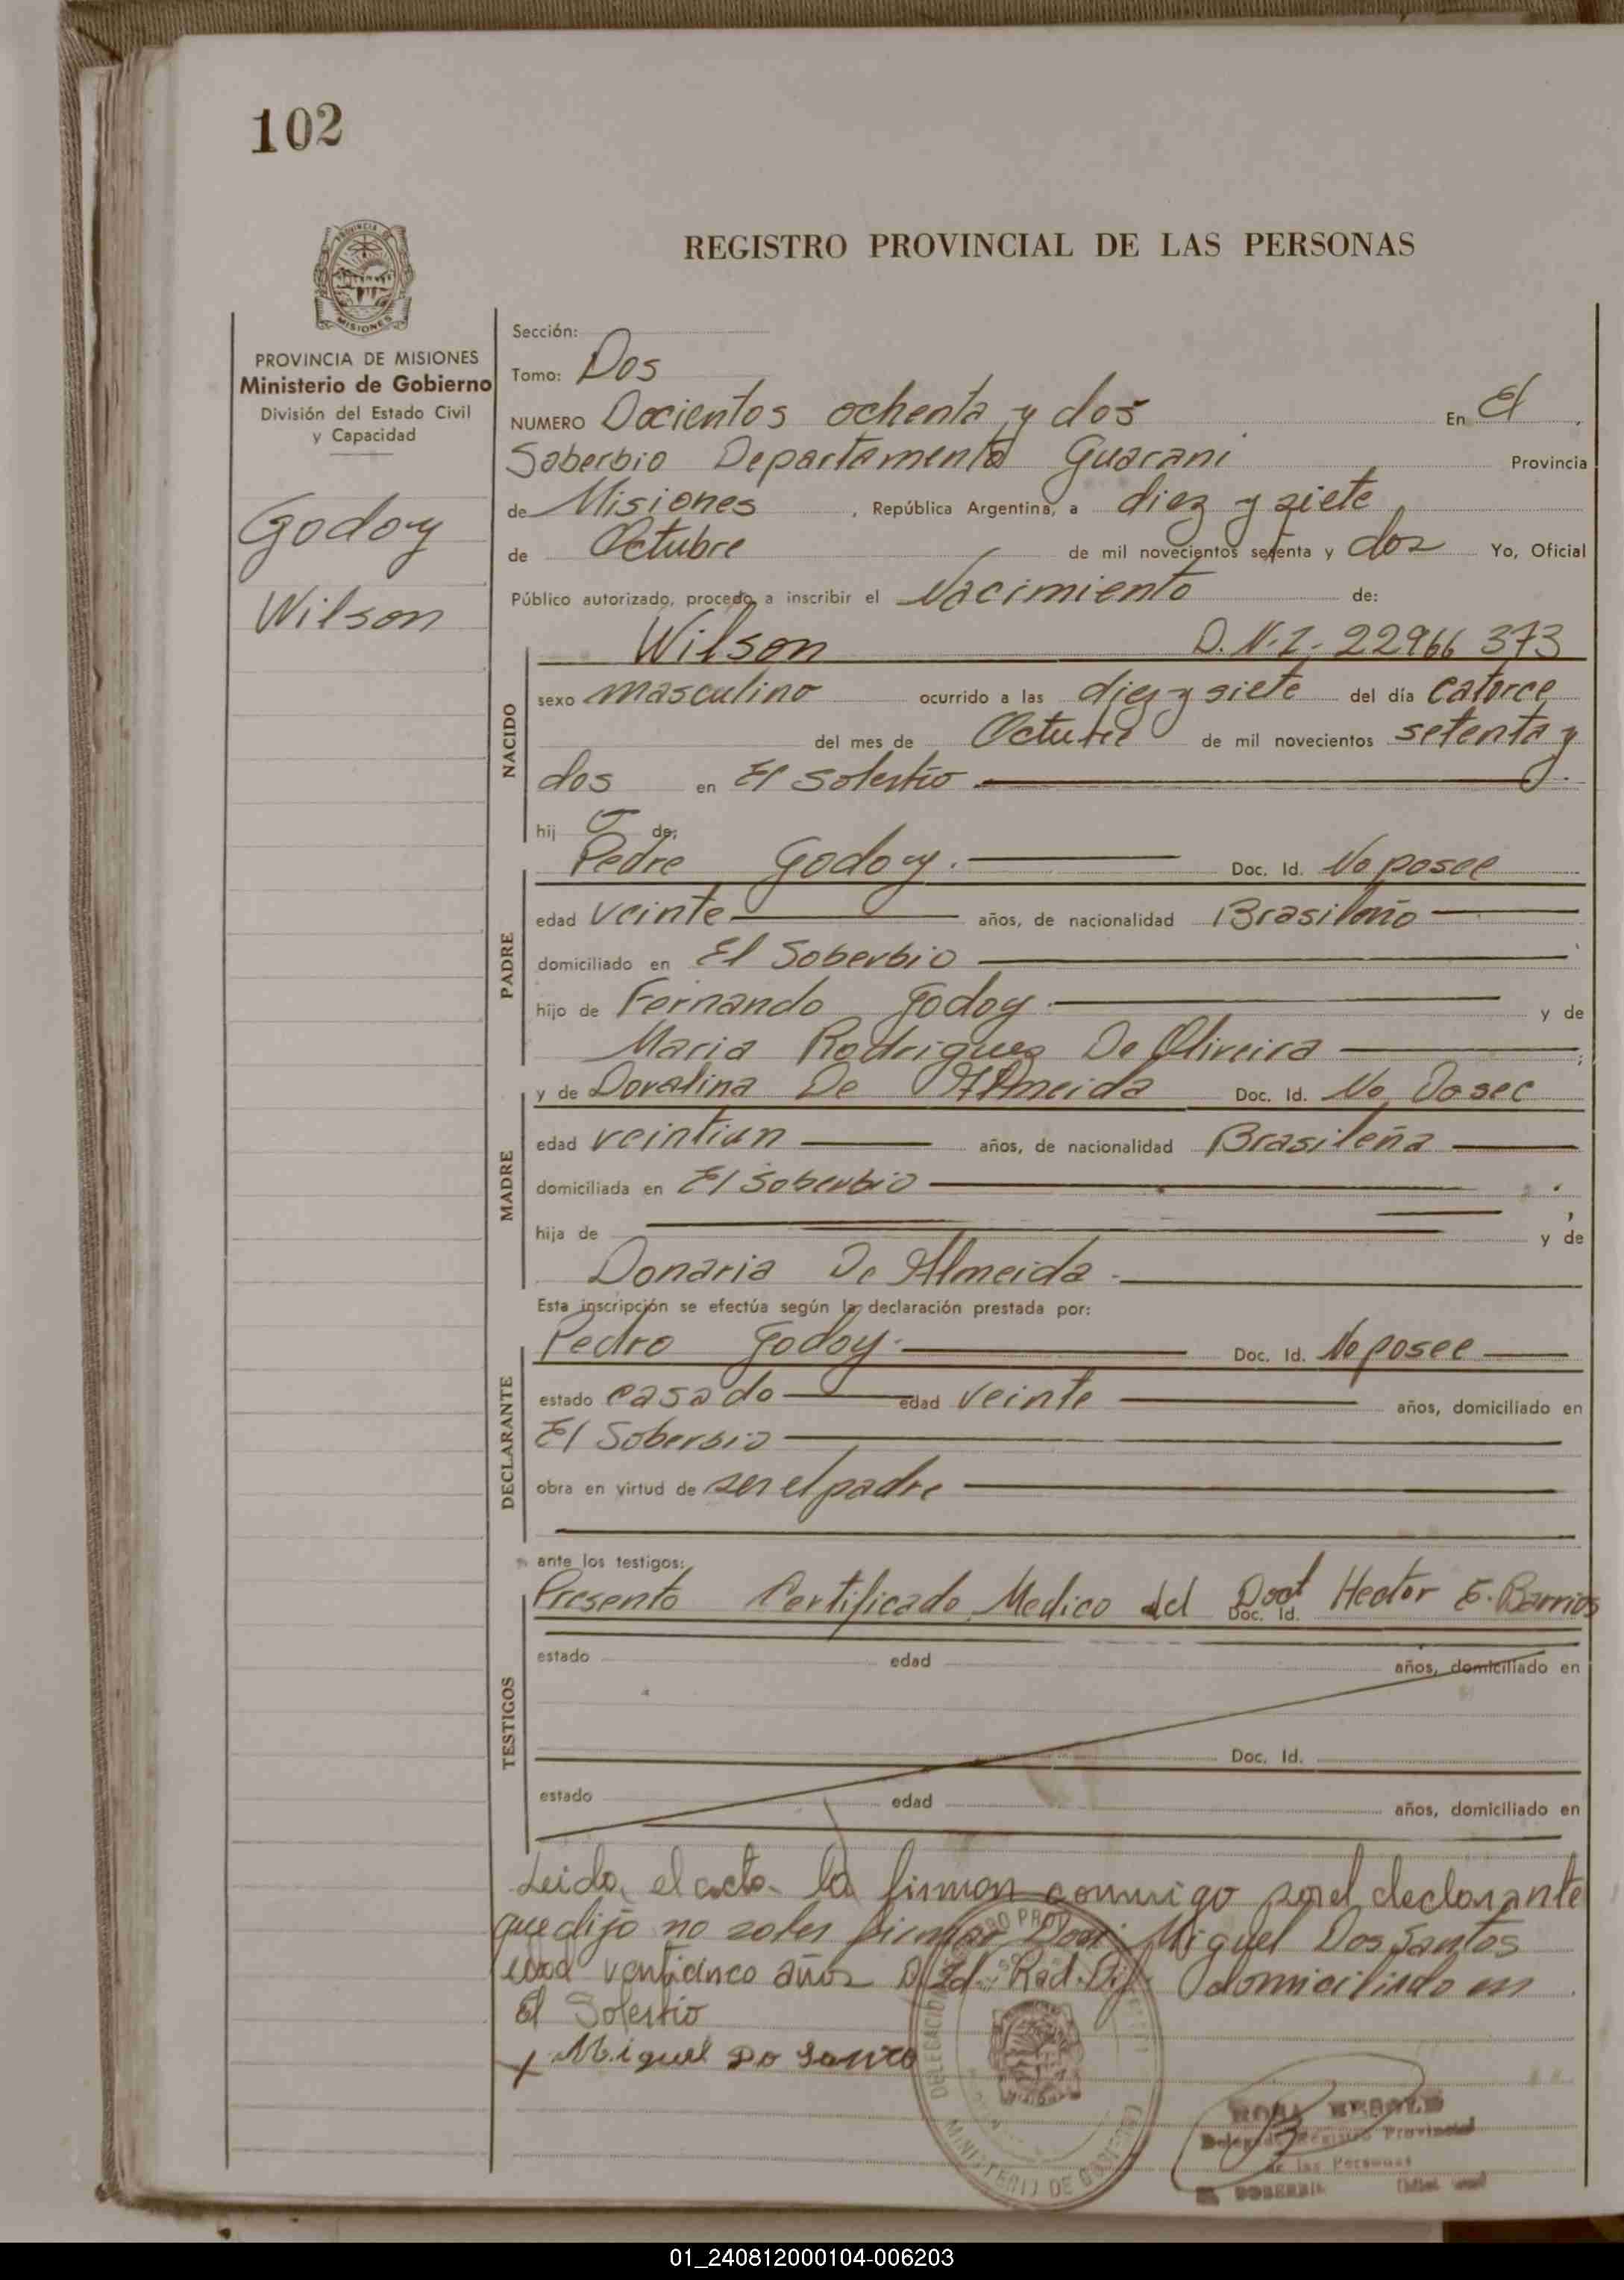 102
REGISTRO PROVINCIAL DE LAS PERSONAS
PROVINCIA DE MISIONES
PROVINCIA DE MISIONES
Ministerio de Gobierno
División del Estado Civil
y Capacidad
Godoy
Wilson
Sección:
Tomo: Dos
NUMERO Docientos ochenta y dos En El
Soberbio Departamento Guarani Provincia
de Misiones, República Argentina, a diez y siete
de Octubre de mil novecientos setenta y dos Yo, Oficial
Público autorizado, procedo a inscribir el Nacimiento de:
NACIDO
Wilson D.N.I. 22966 373
sexo masculino ocurrido a las diez y siete del día catorce
del mes de Octubre de mil novecientos setenta y
dos en El Soberbio
hij o de:
PADRE
Pedro Godoy. Doc. Id. No posee
edad veinte años, de nacionalidad Brasileño
domiciliado en El Soberbio
hijo de Fernando Godoy y de
Maria Rodrigues De Oliveira ;
MADRE
y de Doralina De Almeida Doc. Id. No Posee
edad veintiun años, de nacionalidad Brasileña
domiciliada en El Soberbio
hija de y de
Donaria De Almeida
Esta inscripción se efectúa según la declaración prestada por:
DECLARANTE
Pedro Godoy. Doc. Id. No posee
estado casado edad veinte años, domiciliado en
El Soberbio
obra en virtud de ser el padre
ante los testigos:
TESTIGOS
Presento Certificado Medico del Doct Doc. Id. Hector E. Barrios
estado edad años, domiciliado en
Doc. Id.
estado edad años, domiciliado en
Leida el acta la firman conmigo por el declarante
que dijo no saber firmar Don Miguel Dos Santos
edad venticinco años D. Id. Rad. Dif. domiciliado en
El Soberbio
x Miguel Do Santo
DELEGACION
MINISTERIO DE GOBIERNO
Delegado Registro Provincial
de las Personas
EL SOBERBIO
01_240812000104-006203